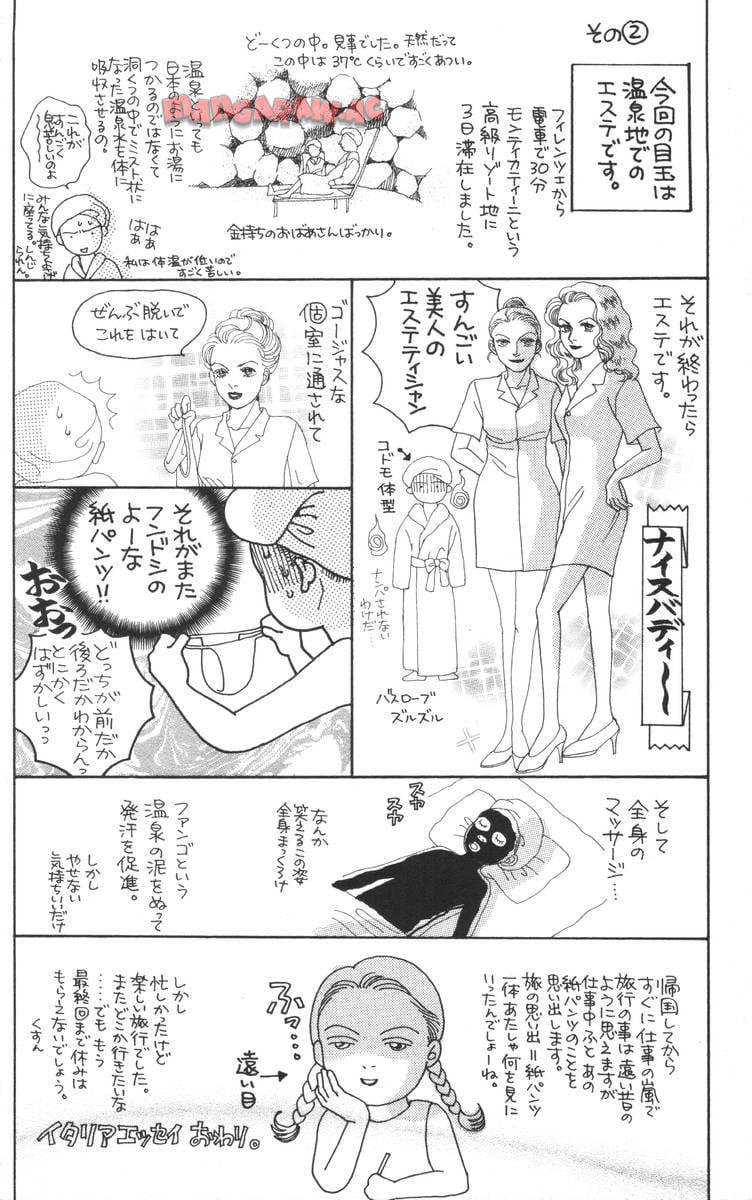 その②
今回の目玉は
温泉地での
エステです。
フィレンツェから
電車で30分
モンティカティーニという
高級リゾート地に
3日滞在しました。
どーくつの中。見事でした。天然だって
この中は37℃くらいですごくあつい。
MANGARAW.AC
金持ちのおばあさんばっかり。
温泉といっても
日本のようにお湯に
つかるのではなくて
洞くつの中でミスト状に
なった温泉水を体に
吸収させるの。
これが
すんごく
息苦しいのよ
はぁ
はぁ
みんな気持ちよさげ
に座ってる。しんじ
られん。
私は体温が低いので
すごく苦しい。
それが終わったら
エステです。
すんごい
美人の
エステティシャン
ナイスバディ〜
コドモ体型
ナンパされない
わけだ…
バスローブ
ズルズル
ゴージャスな
個室に通されて
ぜんぶ脱いで
これをはいて
それがまた
フンドシの
よーな
紙パンツ!!
おおっ
どっちが前だか
後ろだかわからんっ
とにかく
はずかしいっっ
そして
全身の
マッサージ…
スヤ
スヤ
なんか
笑えるこの姿
全身まっくろけ
ファンゴという
温泉の泥をぬって
発汗を促進。
しかし
やせない
気持ちいいだけ
帰国してから
すぐに仕事の嵐で
旅行の事は遠い昔の
ように思えますが
仕事中ふとあの
紙パンツのことを
思い出します。
旅の思い出=紙パンツ
一体あたしゃ何を見に
いったんでしょーね。
ふっ…
遠い目
しかし
忙しかったけど
楽しい旅行でした。
またどこか行きたいな
……でももう
最終回まで休みは
もらえないでしょう。
くすん
イタリアエッセイ おわり。